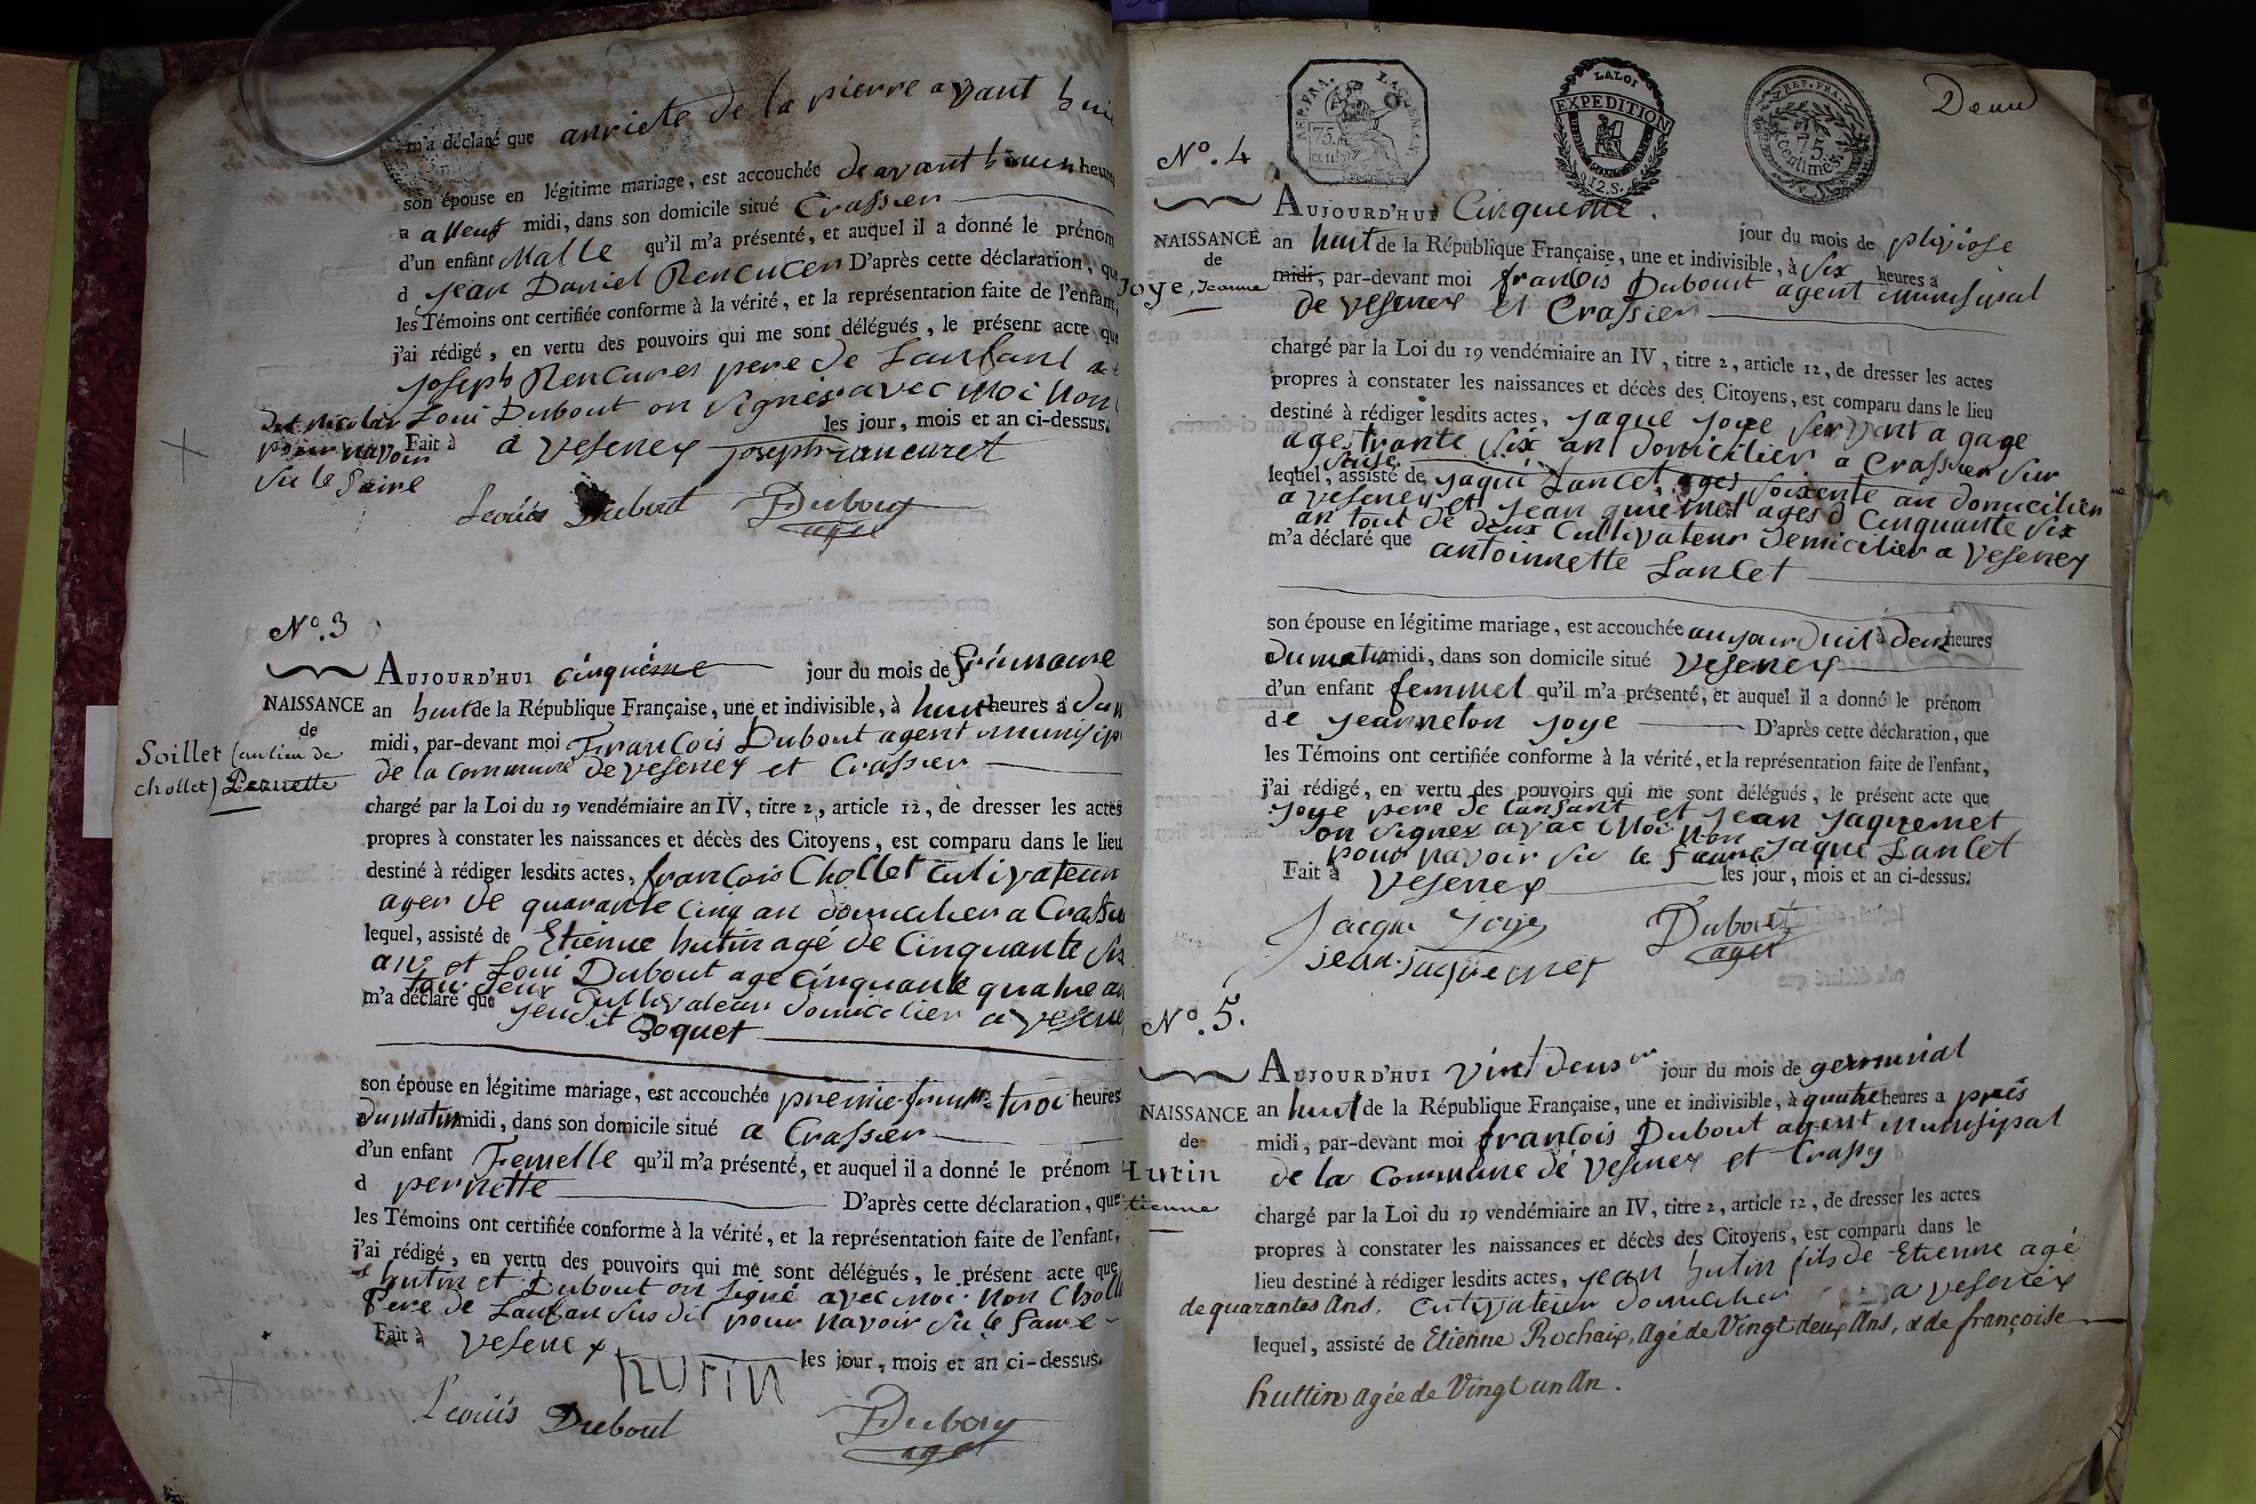 m'a déclaré que anriete de la pierre ayant
son épouse en légitime mariage, est accouchée heures
a midi, dans son domicile situé Crassier
d'un enfant Malle qu'il m'a présenté, et auquel il a donné le prénom
d jean Daniel D'après cette déclaration, que
les Témoins ont certifiée conforme à la vérité, et la représentation faite de l'enfant,
j'ai rédigé, en vertu des pouvoirs qui me sont délégués, le présent acte que
joseph Rencuret pere de Lanfant
Loui Dubout on signés avec moi Non
pour navoir
su le faire
Fait à a Vesenex les jour, mois et an ci-dessus.
joseph rancuret
Leoüis Dubout Dubouy
agt
No. 3
NAISSANCE
de
Soillet (au lieu de
chollet) Pernette
AUJOURD'HUI cinquième jour du mois de frimaire
an huit de la République Française, une et indivisible, à huit heures a du
midi, par-devant moi François Dubout agent munisip
de la commune de Vesenex et Crassier
chargé par la Loi du 19 vendémiaire an IV, titre 2, article 12, de dresser les actes
propres à constater les naissances et décès des Citoyens, est comparu dans le lieu
destiné à rédiger lesdits actes, françois Chollet cultivateur
ager de quarante cinq an domicilier a Crassier
lequel, assisté de Etienne hutin agé de Cinquante six
ans et Loui Dubout age cinquante quatre an
tou deux Cultivateur domicilier a Vesene
m'a déclaré que judit Boquet
son épouse en légitime mariage, est accouchée troi heures
du matin midi, dans son domicile situé a Crassier
d'un enfant Femelle qu'il m'a présenté, et auquel il a donné le prénom
d pernette D'après cette déclaration, que
les Témoins ont certifiée conforme à la vérité, et la représentation faite de l'enfant,
j'ai rédigé, en vertu des pouvoirs qui me sont délégués, le présent acte que
hutin et Dubout on signé avec moi Non Choll
Pere de Lanfan susdit pour navoir su le faire
Fait à Vesenex les jour, mois et an ci-dessus.
hutin
Leoüis Dubout Dubouy
agt
REP. FRA.
75.
LA LOI
EXPEDITION
12. S.
REP. FRA.
75
centimes.
Deux
No. 4
NAISSANCE
de
Joye, Jeanne
AUJOURD'HUI Cinqueme jour du mois de pluviose
an huit de la République Française, une et indivisible, à six heures a
midi, par-devant moi francois Dubout agent munisipal
de Vesenex et Crassier
chargé par la Loi du 19 vendémiaire an IV, titre 2, article 12, de dresser les actes
propres à constater les naissances et décès des Citoyens, est comparu dans le lieu
destiné à rédiger lesdits actes, jaque joye servent a gage
ages trante six an domicilier a Crassier sur
suise
lequel, assisté de jaque Lancet, ages soixente an domicilien
a Vesenex et jean ages d Cinquante six
an tout de deux Cultivateur demicilier a Vesenex
m'a déclaré que antoinnette Lancet
son épouse en légitime mariage, est accouchée aujourduit à deux heures
du matin midi, dans son domicile situé Vesenex
d'un enfant femmel qu'il m'a présenté, et auquel il a donné le prénom
de jeanneton joye D'après cette déclaration, que
les Témoins ont certifiée conforme à la vérité, et la représentation faite de l'enfant,
j'ai rédigé, en vertu des pouvoirs qui me sont délégués, le présent acte que
joye pere de Lanfant et jean jaquemet
on signez avac moi non jaque Lancet
pour navoir su le faire
Fait à Vesenex les jour, mois et an ci-dessus.
Jacque Joye Dubout
jean jaquemet agt
No. 5.
NAISSANCE
de
Hutin
Etienne
AUJOURD'HUI vint deus jour du mois de germinal
an huit de la République Française, une et indivisible, à quatre heures a près
midi, par-devant moi francois Dubout agent munisipal
de la commune de Vesenex et Crassy
chargé par la Loi du 19 vendémiaire an IV, titre 2, article 12, de dresser les actes
propres à constater les naissances et décès des Citoyens, est comparu dans le
lieu destiné à rédiger lesdits actes, jean hutin fils de Etienne agé
de quarantes ans, cutivateur domicilier a vesenex
lequel, assisté de Etienne Rochaix, agé de Vingt deux Ans, & de françoise
huttin agée de Vingt un An.